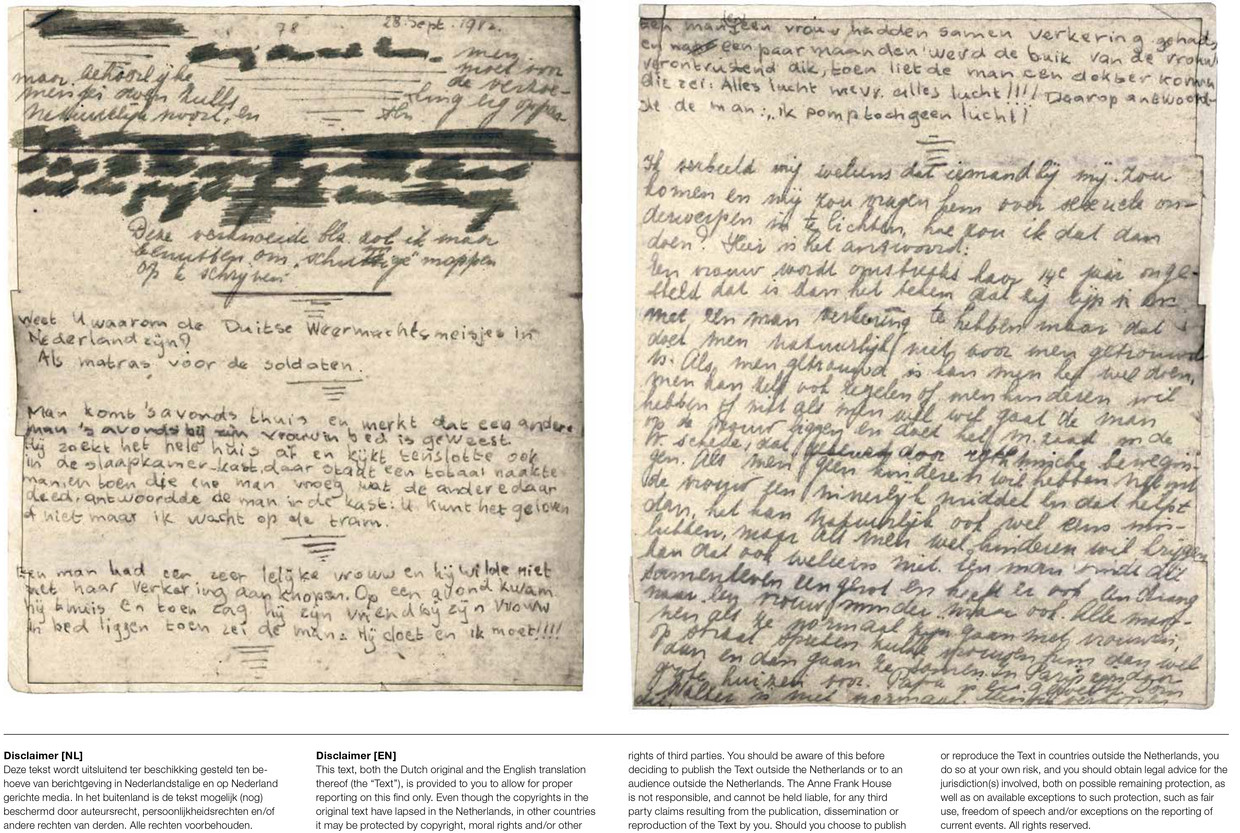 78
28 Sept. 1942.
men
moet voor
maar
mensen
natuurlijk noort, en
Deze verknoeide blz. zal ik maar
benutten om "schuttige" moppen
op te schrijven
Weet U waarom de Duitse Weermachtsmeisjes in
Nederland zijn?
Als matras voor de soldaten.
Man komt 's avonds thuis en merkt dat een andere
man 's avonds bij zijn vrouw in bed is geweest.
Hij zoekt het hele huis af en kijkt tenslotte ook
in de slaapkamer-kast, daar staat een totaal naakte
man, en toen die ene man vroeg wat de andere daar
deed, antwoordde de man in de kast: U kunt het geloven
of niet maar ik wacht op de tram.
Een man had een zeer lelijke vrouw en hij wilde niet
met haar verkering aanknopen. Op een avond kwam
hij thuis en toen zag hij zijn vriend bij zijn vrouw
in bed liggen toen zei de man: Hij doet en ik moet!!!!
Een man en een vrouw hadden samen verkering gehad,
en een paar maanden werd de buik van de vrouw
verontrustend dik, toen liet de man een dokter komen
die zei: Alles lucht mevr. alles lucht!!!! Daarop antwoord-
de de man: "ik pomp toch geen lucht!
Ik verbeeld mij weleens dat iemand bij mij zou
komen en mij zou vragen hem over sexuele on-
derwerpen in te lichten, hoe zou ik dat dan
doen? Hier is het antwoord:
Een vrouw wordt omstreeks haar 14e jaar onge-
steld dat is dan het teken dat zij rijp is om
met een man verkering te hebben maar dat
doet men natuurlijk niet voor men getrouwd
is. Als men getrouwd is kan men het wel doen,
men kan zelf ook regelen of men kinderen wil
hebben of niet als men wel wil gaat de man
op de vrouw liggen en doet het m. zaad in de
vr. schede, dat door rythmische bewegin-
gen. Als men geen kinderen wil hebben
de vrouw een innerlijk middel en dat helpt
dan, het kan natuurlijk ook wel eens mis-
lukken, maar als men wel kinderen wil krijgen
kan dat ook weleens niet. Een man vindt dit
samenleven een genot en heeft er ook een drang
naar, een vrouw minder maar ook. Alle man-
nen als ze normaal zijn gaan met vrouwen,
op straat spreken zulke vrouwen hun dan wel
aan en dan gaan ze samen. In Parijs zijn daar
grote huizen voor. Papa is er geweest. Oom
Walter is niet normaal.
Disclaimer [NL]
Deze tekst wordt uitsluitend ter beschikking gesteld ten be-
hoeve van berichtgeving in Nederlandstalige en op Nederland
gerichte media. In het buitenland is de tekst mogelijk (nog)
beschermd door auteursrecht, persoonlijkheidsrechten en/of
andere rechten van derden. Alle rechten voorbehouden.
Disclaimer [EN]
This text, both the Dutch original and the English translation
thereof (the “Text”), is provided to you to allow for proper
reporting on this find only. Even though the copyrights in the
original text have lapsed in the Netherlands, in other countries
it may be protected by copyright, moral rights and/or other
rights of third parties. You should be aware of this before
deciding to publish the Text outside the Netherlands or to an
audience outside the Netherlands. The Anne Frank House
is not responsible, and cannot be held liable, for any third
party claims resulting from the publication, dissemination or
reproduction of the Text by you. Should you choose to publish
or reproduce the Text in countries outside the Netherlands, you
do so at your own risk, and you should obtain legal advice for the
jurisdiction(s) involved, both on possible remaining protection, as
well as on available exceptions to such protection, such as fair
use, freedom of speech and/or exceptions on the reporting of
current events. All rights reserved.